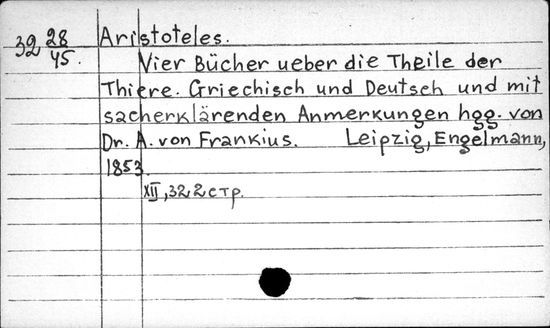 32 28/45. Aristoteles.
Vier Bücher ueber die Theile der
Thiere. Griechisch und Deutsch und mit
sacherklärenden Anmerkungen hgg. von
Dr. A. von Frankius. Leipzig, Engelmann,
1853.
XII, 322 стр.